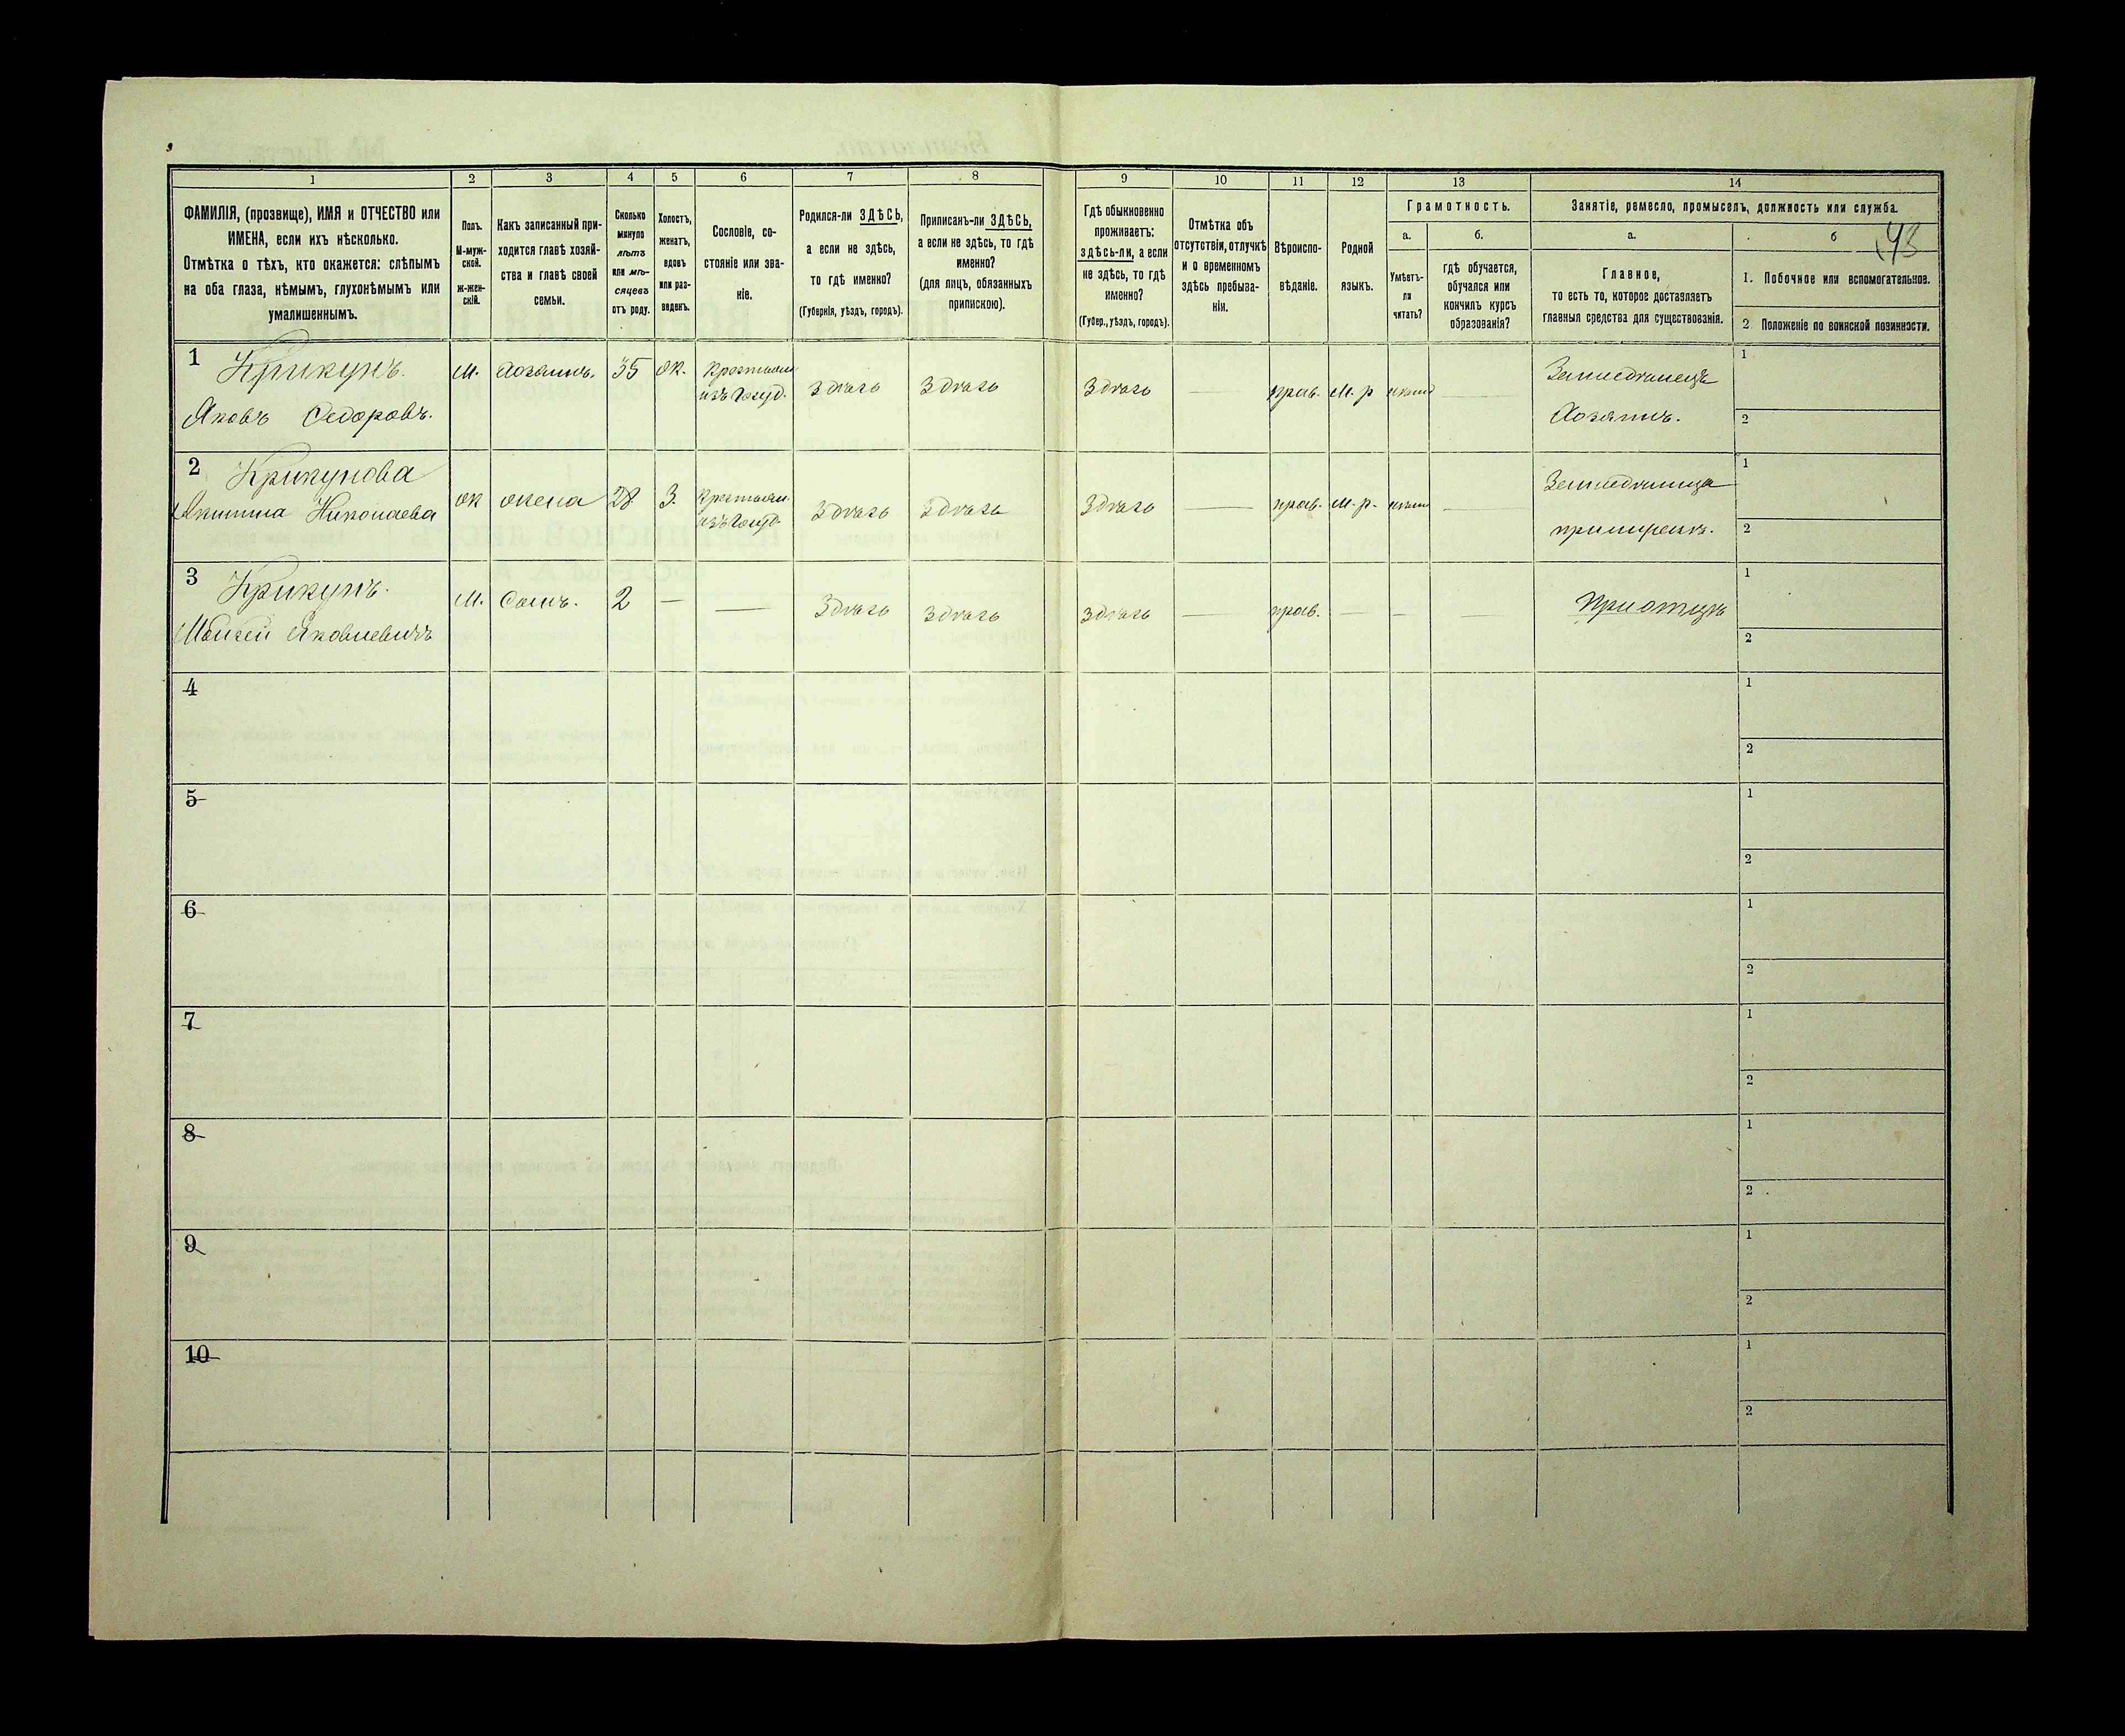 1 2 3 4 5 6 7 8 9 10 11 12 13 14
ФАМИЛІЯ, (прозвище), ИМЯ и ОТЧЕСТВО или
ИМЕНА, если ихъ нѣсколько.
Отмѣтка о тѣхъ, кто окажется: слѣпымъ
на оба глаза, нѣмымъ, глухонѣмымъ или
умалишеннымъ.
Полъ.
М-муж-
ской.
ж-жен-
скій.
Какъ записанный при-
ходится главѣ хозяй-
ства и главѣ своей
семьи.
Сколько
минуло
лѣтъ
или мѣ-
сяцевъ
отъ роду.
Холостъ,
женатъ,
вдовъ
или раз-
веденъ.
Сословіе, со-
стояніе или зва-
ніе.
Родился-ли ЗДѢСЬ,
а если не здѣсь,
то гдѣ именно?
(Губернія, уѣздъ, городъ).
Приписанъ-ли ЗДѢСЬ,
а если не здѣсь, то гдѣ
именно?
(для лицъ, обязанныхъ
припискою).
Гдѣ обыкновенно
проживаетъ:
здѣсь-ли, а если
не здѣсь, то гдѣ
именно?
(Губер., уѣздъ, городъ).
Отмѣтка объ
отсутствіи, отлучкѣ
и о временномъ
здѣсь пребыва-
ніи.
Вѣроиспо-
вѣданіе.
Родной
языкъ.
Грамотность.
а.
Умѣетъ-
ли
читать?
б.
гдѣ обучается,
обучался или
кончилъ курсъ
образованія?
Занятіе, ремесло, промыселъ, должность или служба.
а.
Главное,
то есть то, которое доставляетъ
главныя средства для существованія.
б
43
1. Побочное или вспомогательное.
2 Положеніе по воинской повинности.
1 Крикунъ.
Яковъ Федоровъ.
м. Хозяинъ. 35 ж. Крестьян
изъ Госуд. Здѣсь Здѣсь Здѣсь — прав. М. р —
Земледѣлецъ
Хозяинъ.
1
2
2 Крикунова
Николаева
ж жена 28 З. Крестьян.
изъ Госуд. Здѣсь Здѣсь Здѣсь — прав. М. р. —
Земледѣлица
1
2
3 Крикунъ.
Моисей Яковлевичъ
м. Сынъ. 2 — — Здѣсь Здѣсь Здѣсь — прав. — — —
При отцѣ
1
2
4
1
2
5
1
2
6
1
2
7
1
2
8
1
2
9
1
2
10
1
2